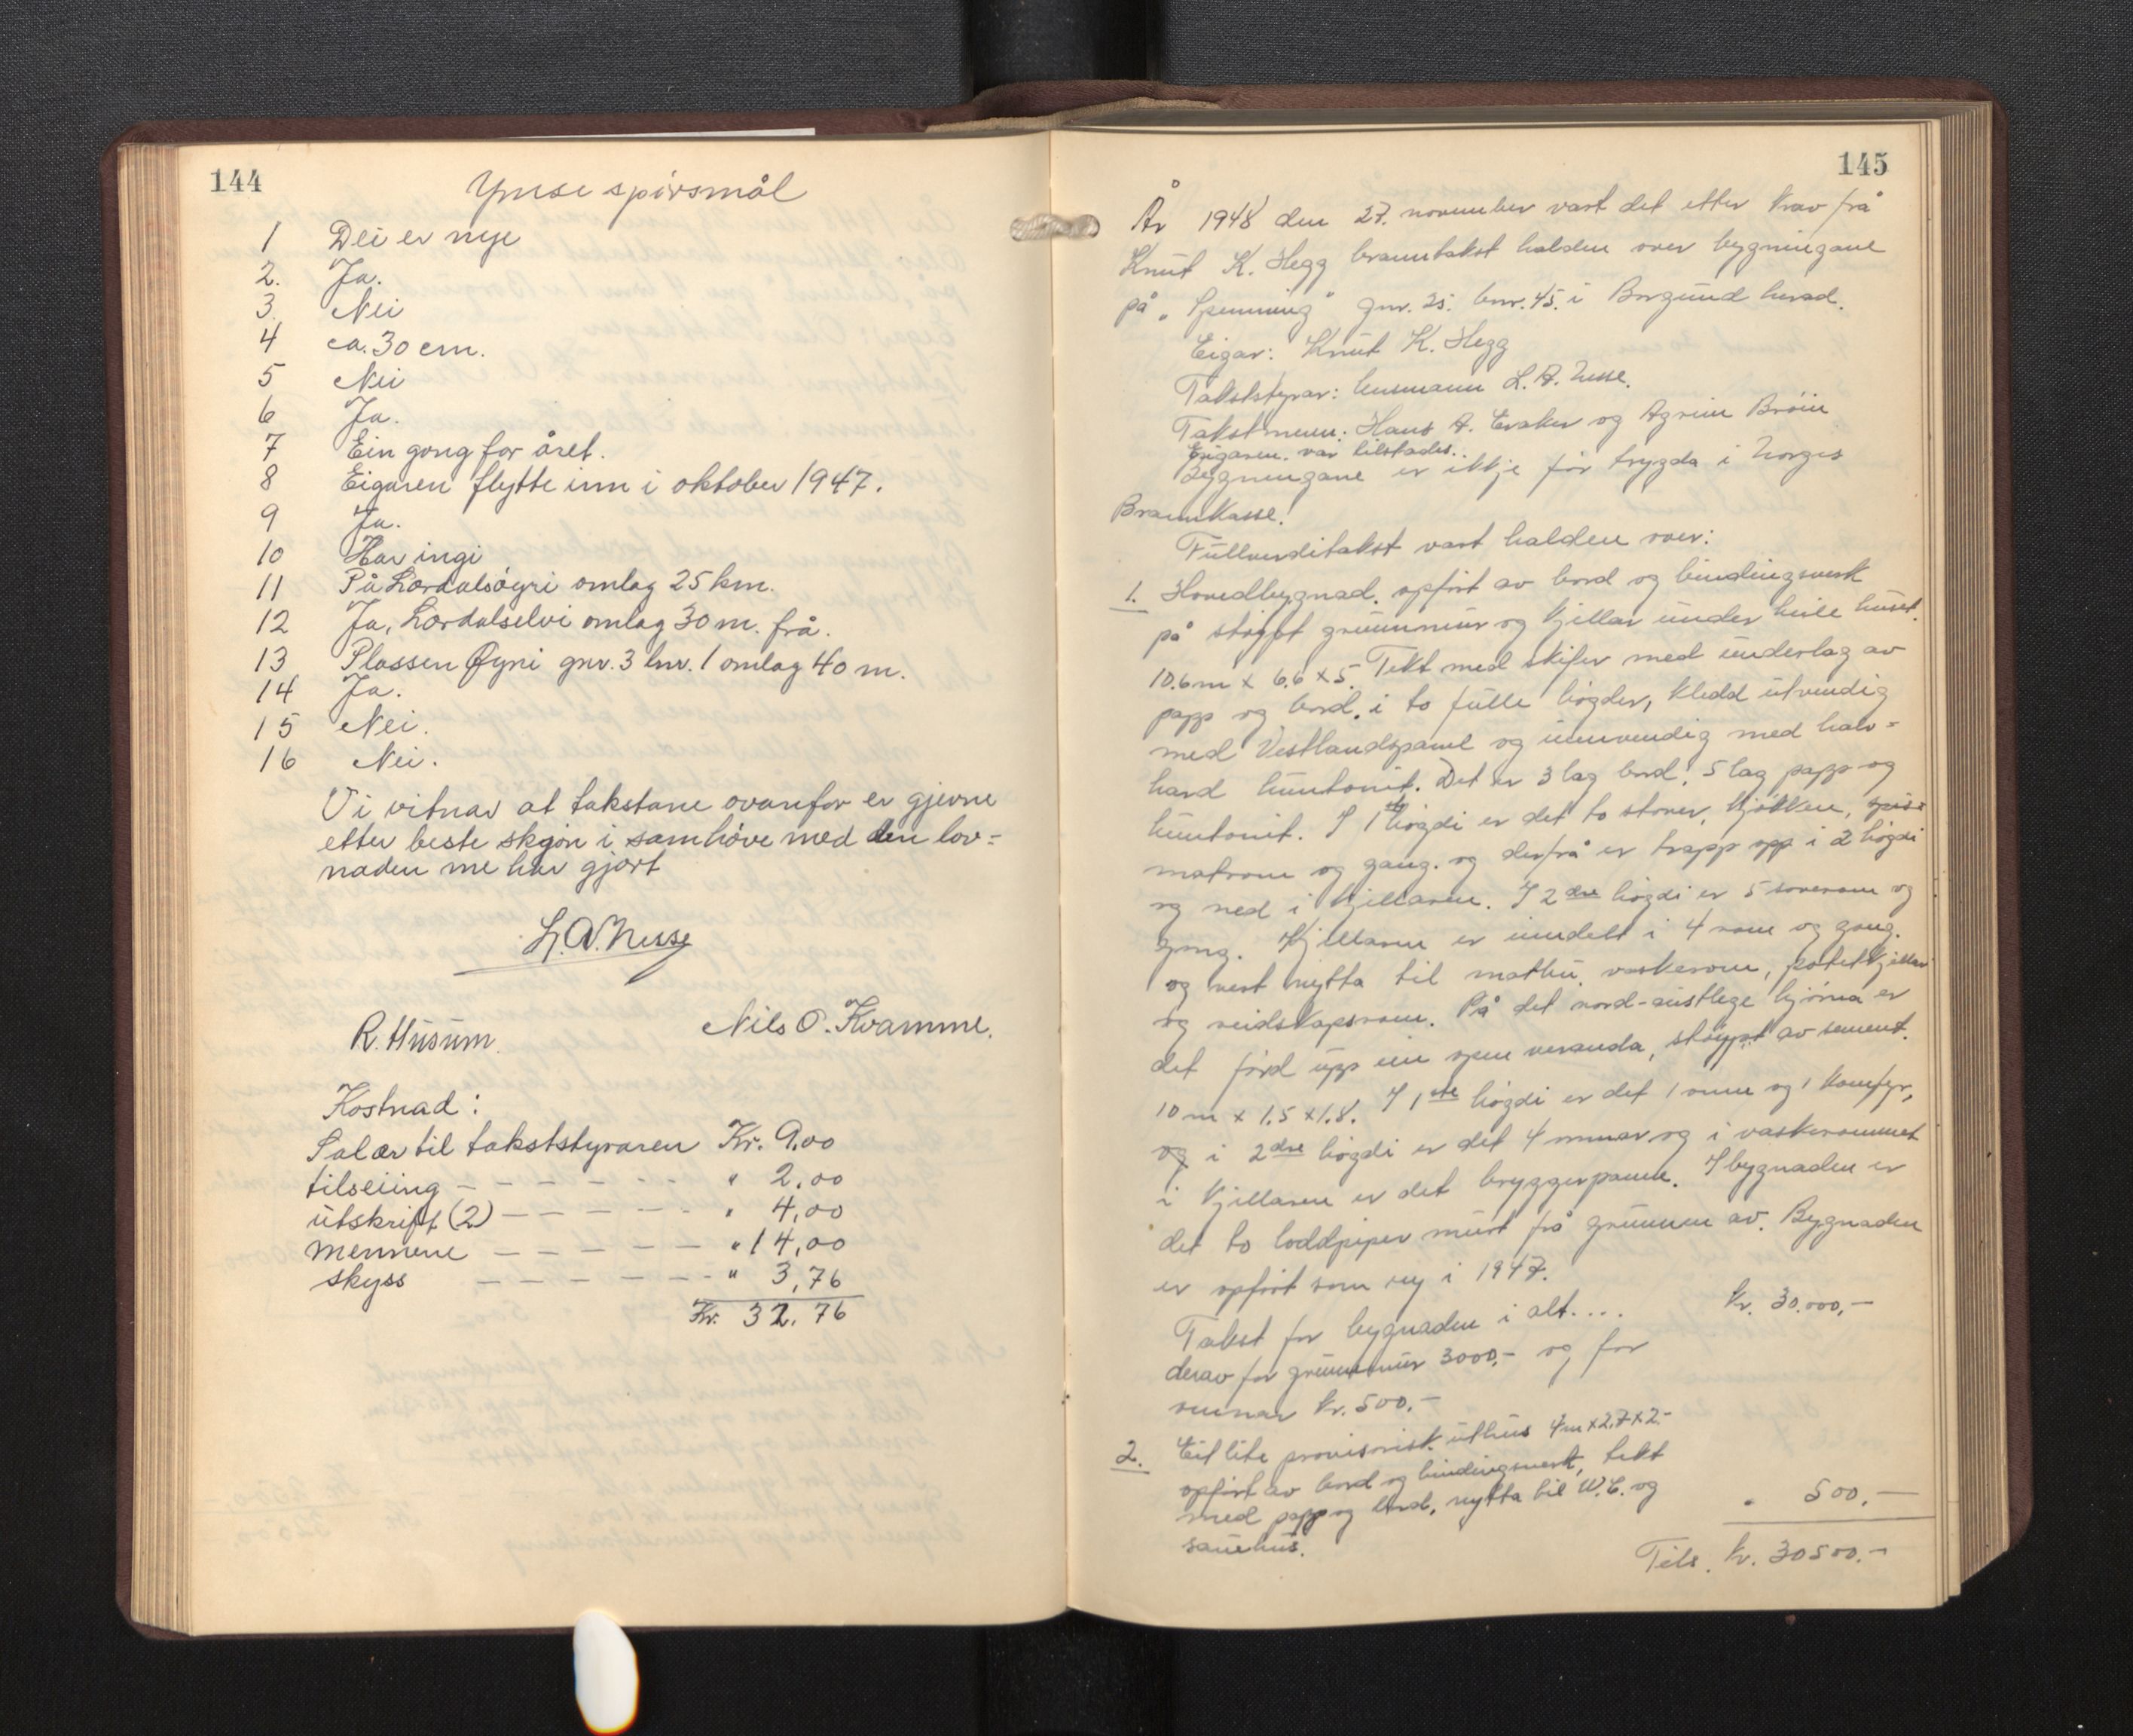 144
Ymse spörsmål
1 Dei er nye
2. Ja.
3. Nei
4 ca. 30 cm.
5 Nei
6 Ja.
7 Ein gong for året.
8 Eigaren flytte inn i oktober 1947.
9 Ja.
10 Har ingi
11 På Lærdalsöyri omlag 25 km.
12 Ja, Lærdalselvi omlag 30 m. frå.
13 Plassen Öyni gnr. 3 bnr. 1 omlag 40 m.
14 Ja.
15 Nei.
16 Nei.
Vi vitnar at takstane ovanfor er gjevne
etter beste skjön i samhöve med den lov-
naden me har gjort
L. A. Nesse
R. Husum. Nils O. Kvamme.
Kostnad:
Salær til takststyraren Kr. 9,00
tilseiing " 2,00
utskrift (2) " 4,00
mennene " 14,00
skyss " 3,76
Kr. 32,76
145
År 1948 den 27. november vart det etter krav frå
Knut K. Hegg branntakst halden over bygningane
på „Spenning" gnr. 25. bnr. 45. i Borgund herad.
Eigar: Knut K. Hegg
Takststyrar: lensmann L. A. Nesse.
Takstmenn: Hans A. Eraker og Agrim Bröin
Eigaren var tilstades.
Bygningane er ikkje för trygda i Norges
Brannkasse.
Fullverditakst vart halden over:
1. Hovedbygnad, opfört av bord og bindingsverk
på stöypt grunnmur og kjellar under heile huset.
10.6 m x 6.6 x 5. Tekt med skifer med underlag av
papp og bord, i to fulle högder, kledd utvendig
med Vestlandspanel og innvendig med halv-
hard huntonit. Det er 3 lag bord, 5 lag papp og
huntonit. I 1ste högdi er det to stover, kjökken, spis=
matrom og gang. og derfrå er trapp opp i 2 högdi
og ned i kjellaren. I 2dre högdi er 5 soverom og
gang. Kjellaren er inndelt i 4 rom og gang.
og vert nytta til mathu, vaskerom, potetkjellar
og reidskapsrom. På det nord-austlege hjörna er
det förd upp ein open veranda, stöypt av sement.
10 m x 1.5 x 1.8. I 1ste högdi er det 1 omn og 1 komfyr,
og i 2dre högdi er det 4 omnar og i vaskerommet
i kjellaren er det bryggerpanne. I bygnaden er
det to loddpiper murt frå grunnen av. Bygnaden
er opfört som ny i 1947.
Takst for bygnaden i alt.... Kr. 30.000,-
derav for grunnmur 3000,- og for
omnar kr. 500.-
2. Eit lite provisorisk uthus 4 m x 2,7 x 2.-
opfört av bord og bindingsverk, tekt
med papp og bord, nytta til W.C. og
sauehus. " 500.-
Tils. kr. 30500.-